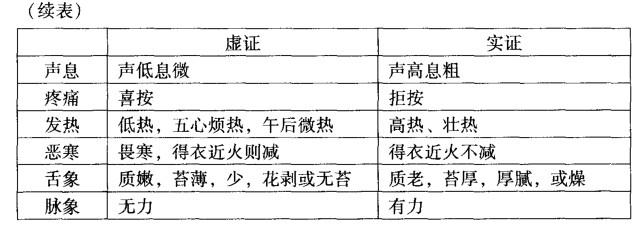 （续表）
虚证 实证
声息 声低息微 声高息粗
疼痛 喜按 拒按
发热 低热，五心烦热，午后微热 高热、壮热
恶寒 畏寒，得衣近火则减 得衣近火不减
舌象 质嫩，苔薄，少，花剥或无苔 质老，苔厚，厚腻，或燥
脉象 无力 有力